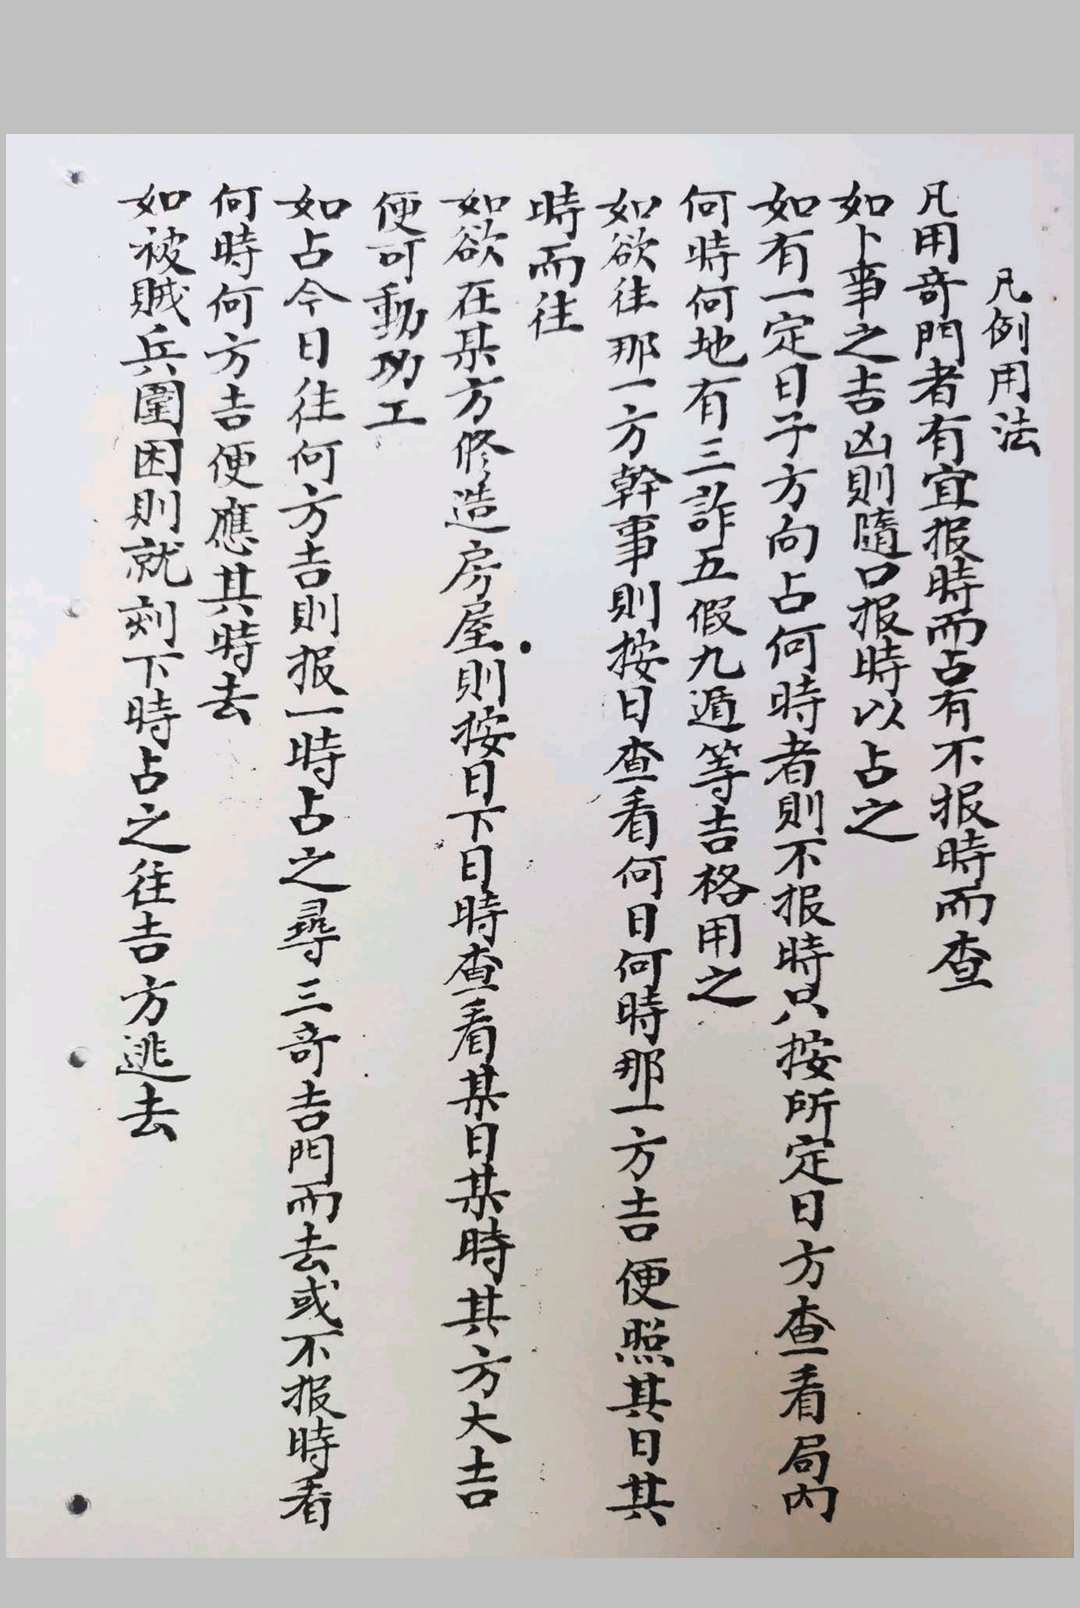 凡例用法
凡用奇門者有宜报時而占有不报時而查
如卜事之吉凶則隨口报時以占之
如有一定日子方向占何時者則不报時只按所定日方查看局内
何時何地有三詐五假九遁等吉格用之
如欲往那一方幹事則按日查看何日何時那一方吉便照其日其
時而往
如欲在某方修造房屋則按日下日時查看某日某時其方大吉
便可動功工
如占今日往何方吉則报一時占之尋三奇吉門而去或不报時看
何時何方吉便應其時去
如被賊兵圍困則就刻下時占之往吉方逃去